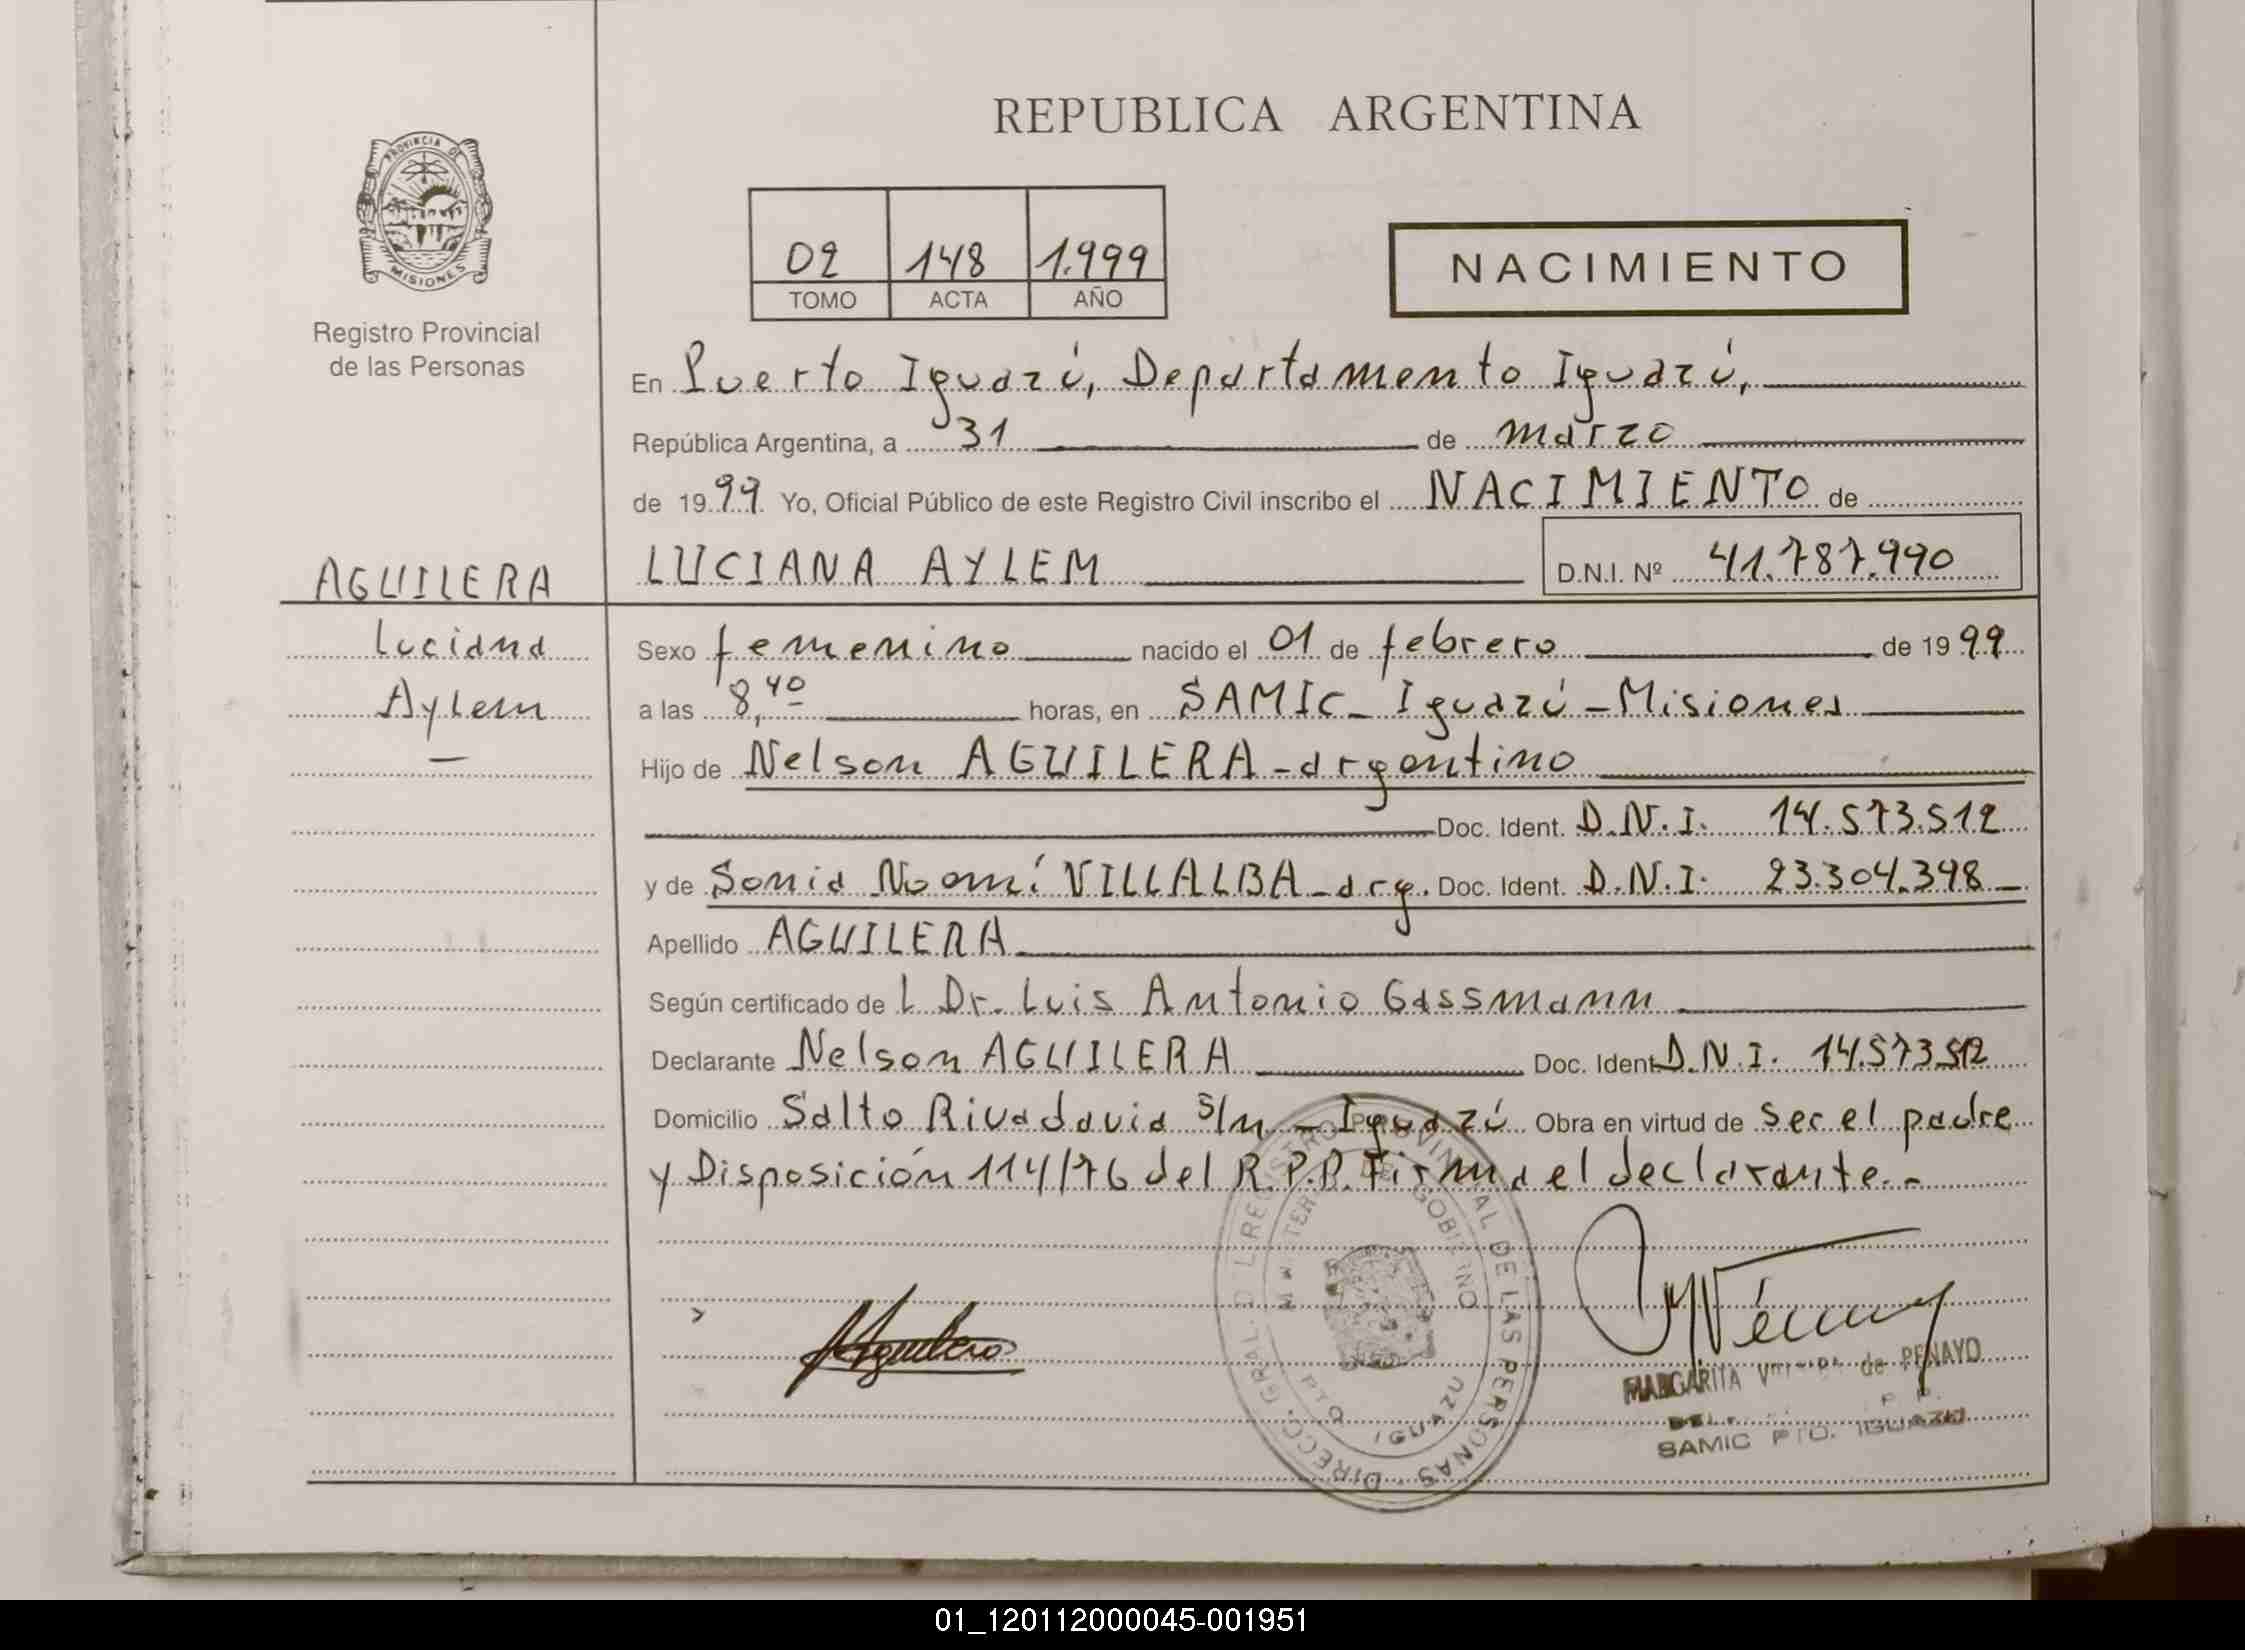 REPUBLICA ARGENTINA
PROVINCIA DE
MISIONES
Registro Provincial
de las Personas
02 148 1.999
TOMO ACTA AÑO
NACIMIENTO
En Puerto Iguazú, Departamento Iguazú,
República Argentina, a 31 de marzo
de 1999 Yo, Oficial Público de este Registro Civil inscribo el NACIMIENTO de
AGUILERA
LUCIANA AYLEM
D.N.I. Nº 41.787.990
Luciana
Aylem
Sexo femenino nacido el 01 de febrero de 1999
a las 8,40 horas, en SAMIC - Iguazú - Misiones
Hijo de Nelson AGUILERA - argentino
Doc. Ident. D.N.I. 14.573.512
y de Sonia Noemí VILLALBA - arg. Doc. Ident. D.N.I. 23.304.398
Apellido AGUILERA
Según certificado de L Dr. Luis Antonio Gassmann
Declarante Nelson AGUILERA Doc. Ident D.N.I. 14.573.512
Domicilio Salto Rivadavia s/n - Iguazú Obra en virtud de ser el padre
y Disposición 114/76 del R.P.P. Firma el declarante.-
DIRECC. GRAL. D L REGISTRO PROVINCIAL DE LAS PERSONAS
GOBIERNO
PTO IGUAZU
MARGARITA de PENAYO
SAMIC PTO. IGUAZU
01_120112000045-001951